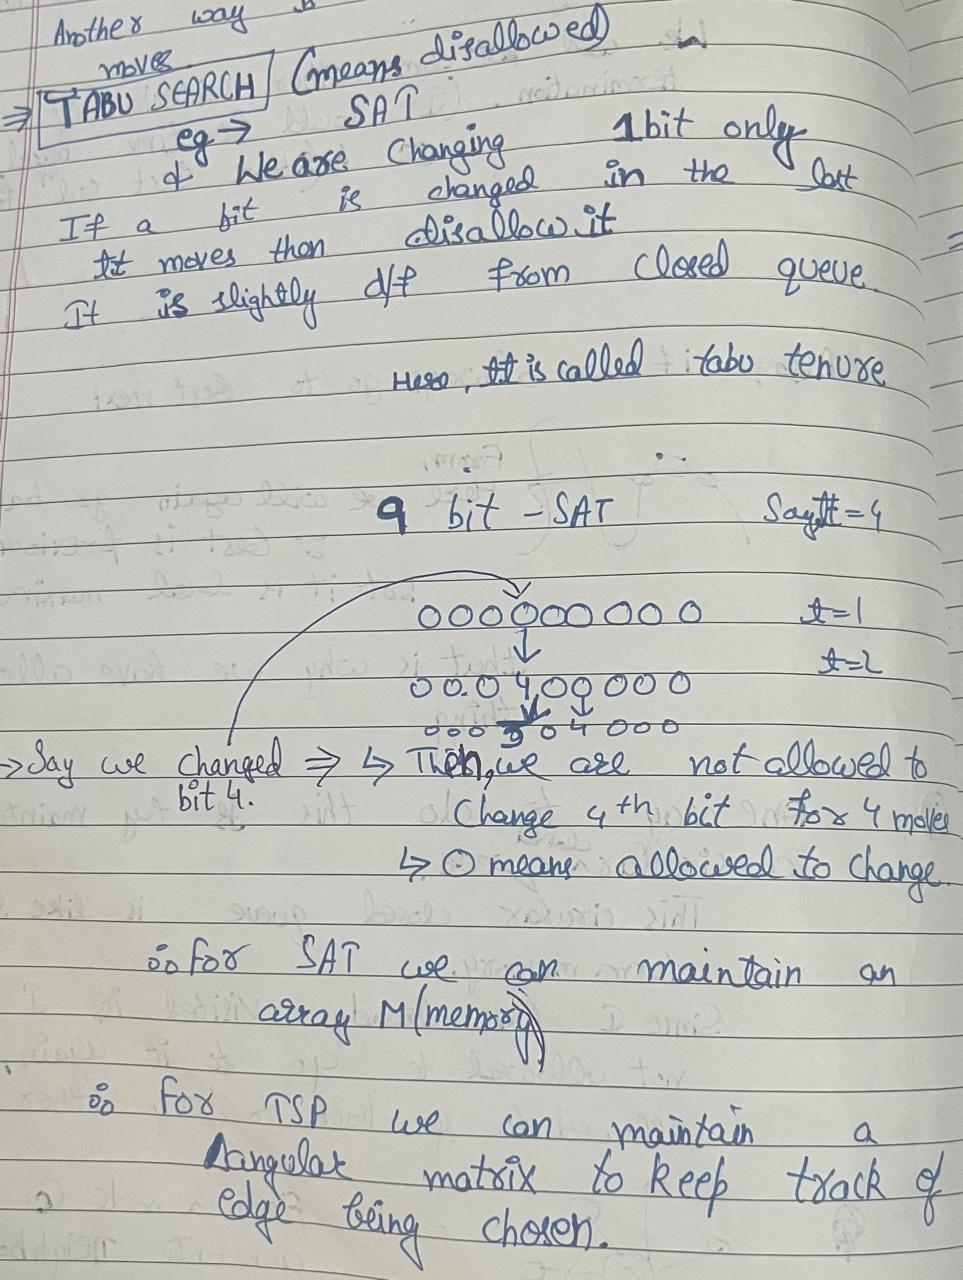 Another way
moves
⇒ TABU SEARCH (means disallowed)
eg → SAT
of We are Changing 1 bit only
If a bit is changed in the last
tt moves then disallow it
It is slightly d/f from closed queue
Here, tt is called tabu tenure
9 bit - SAT Say tt = 4
000000000 t=1
t=2
000400000
000304000
→ Say we changed ⇒ ↳ Then, we are not allowed to
bit 4. Change 4th bit for 4 moves
↳ 0 means allowed to change.
∴ for SAT we can maintain an
array M (memory)
∴ for TSP we can maintain a
Δangular matrix to keep track of
edge being chosen.